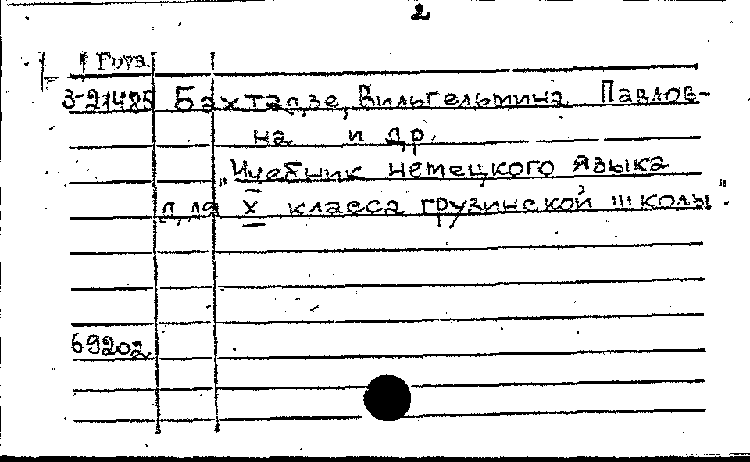 2
Груз.
3-21485 Бахтадзе, Вильгельмина Павлов-
на и др.
"Учебник немецкого языка
для X класса грузинской школы".
69202